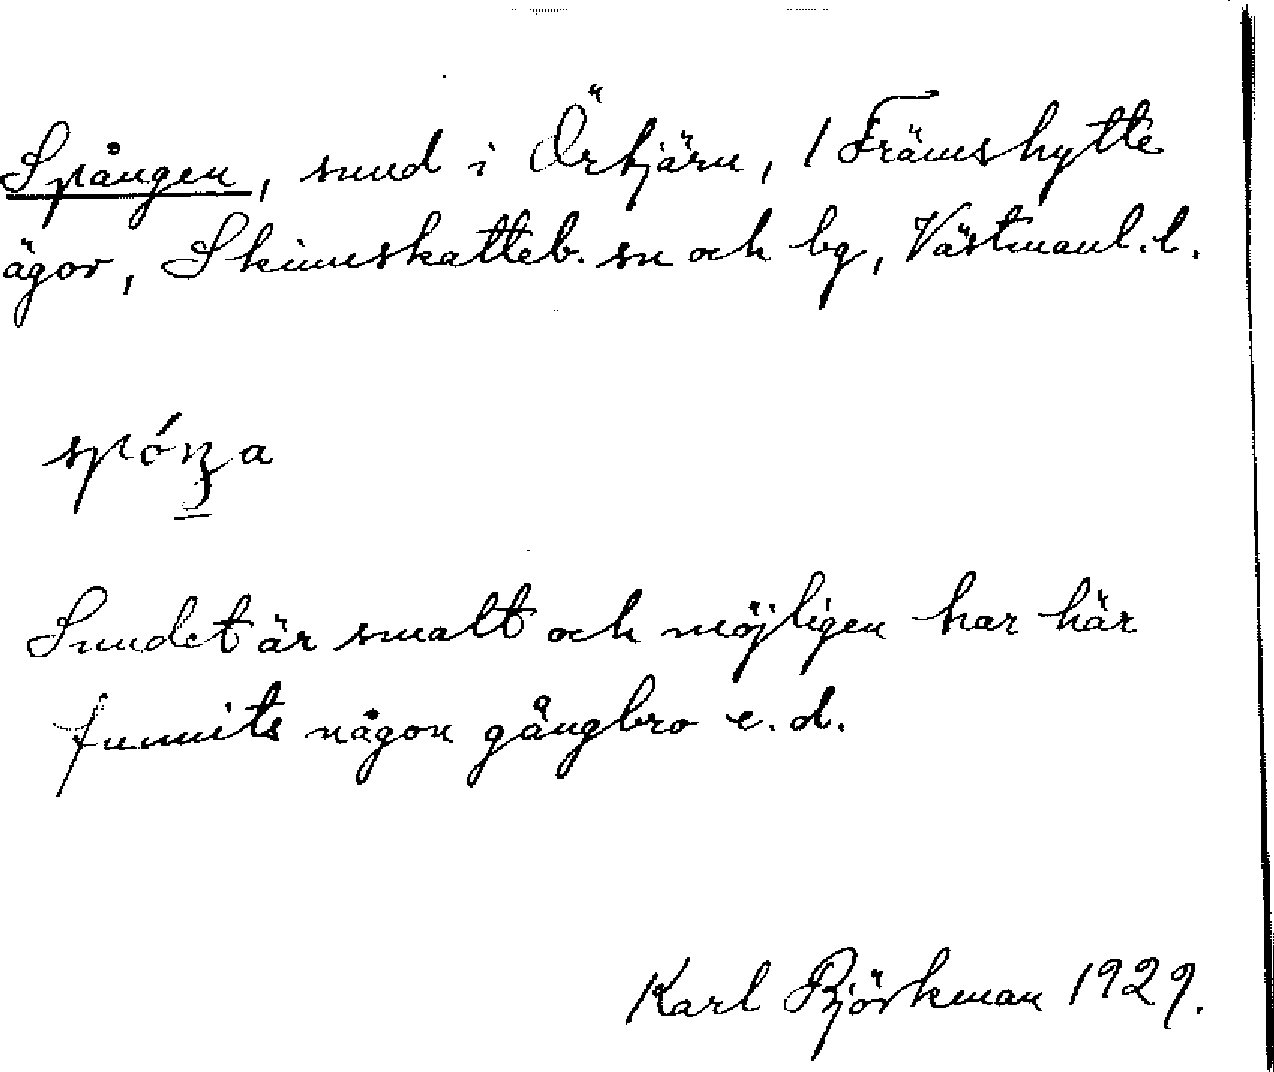 Spången, sund i Örtjärn, 1 Främshytte
ägor, Skinnskatteb. sn och bg, Västmanl. l.
Sundet är smalt och möjligen har här
funnits någon gångbro e. d.
Karl Björkman 1929.